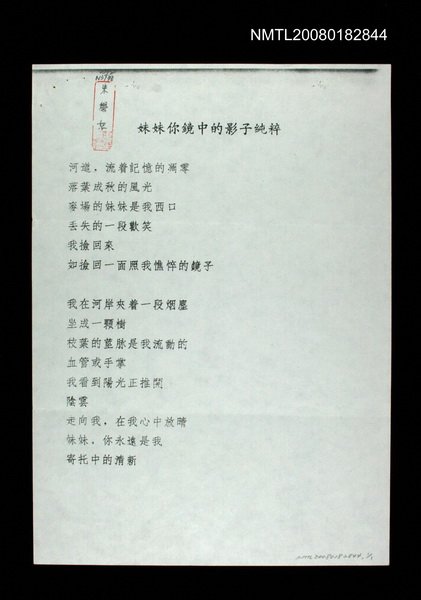 NMTL20080182844
妹妹你鏡中的影子純粹
河道，流着記憶的凋零
落葉成秋的風光
麥場的妹妹是我西口
丢失的一段歡笑
我撿回來
如撿回一面照我憔悴的鏡子
我在河岸夾着一段烟塵
坐成一顆樹
枝葉的莖脉是我流動的
血管或手掌
我看到陽光正推開
陰雲
走向我，在我心中放晴
妹妹，你永遠是我
寄托中的清新
NMTL20080182844, 1/1